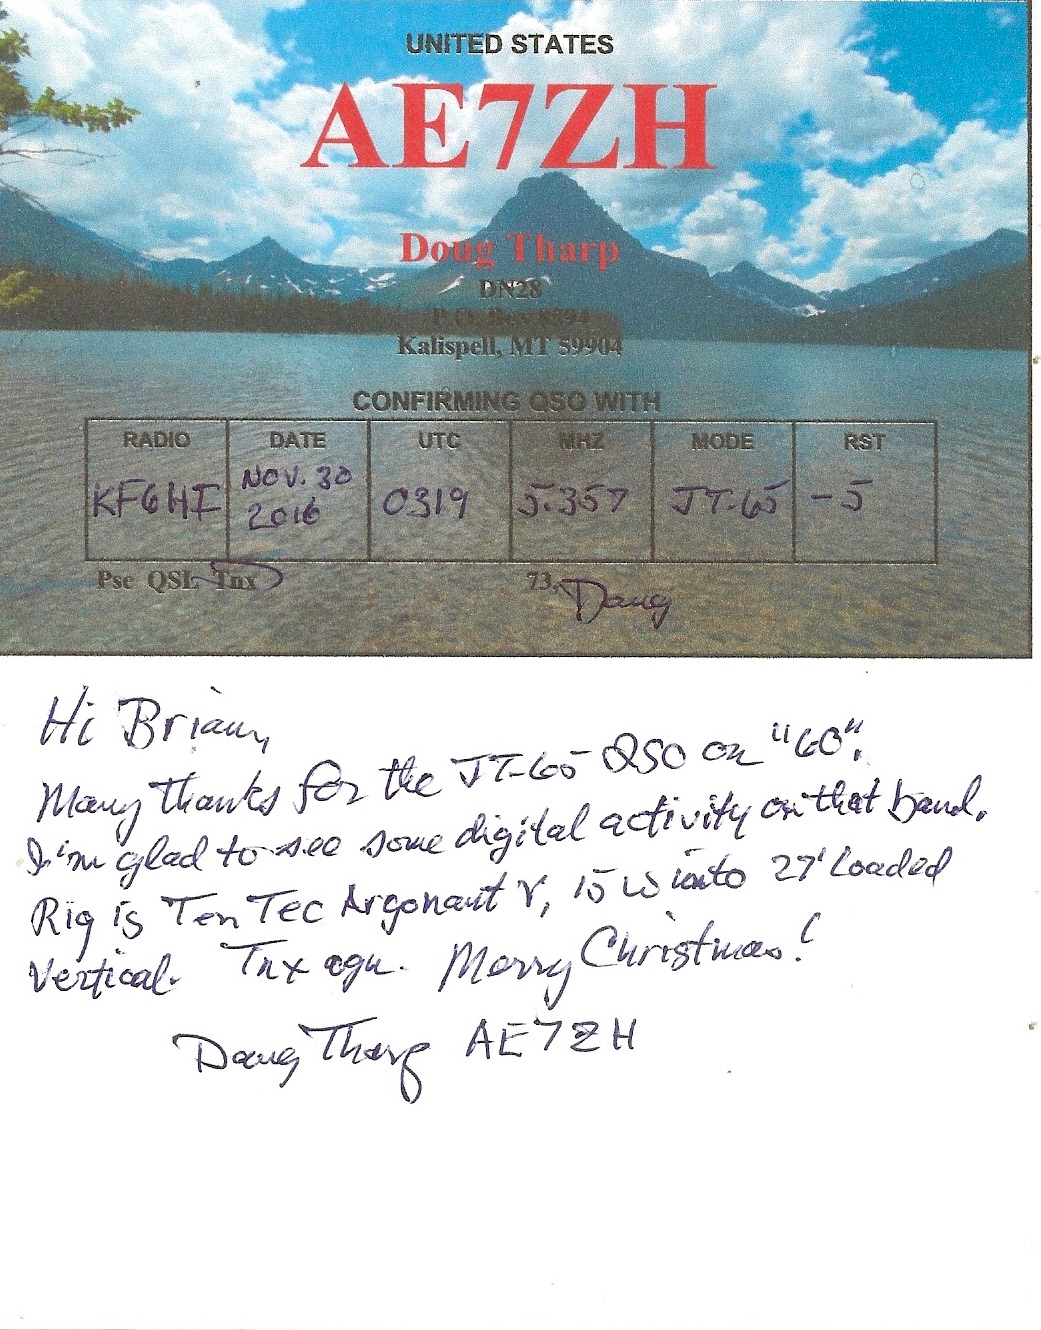 UNITED STATES
AE7ZH
Doug Tharp
DN28
P.O. Box 8894
Kalispell, MT 59904
CONFIRMING QSO WITH
RADIO DATE UTC MHZ MODE RST
KF6HI NOV. 30 2016 0319 5.357 JT-65 -5
Pse QSL Tnx 73, Doug
Hi Brian,
Many thanks for the JT-65 QSO on "60".
I'm glad to see some digital activity on that band.
Rig is Ten Tec Argonaut V, 15 W into 27' Loaded
Vertical. Tnx agn. Merry Christmas!
Doug Tharp AE7ZH